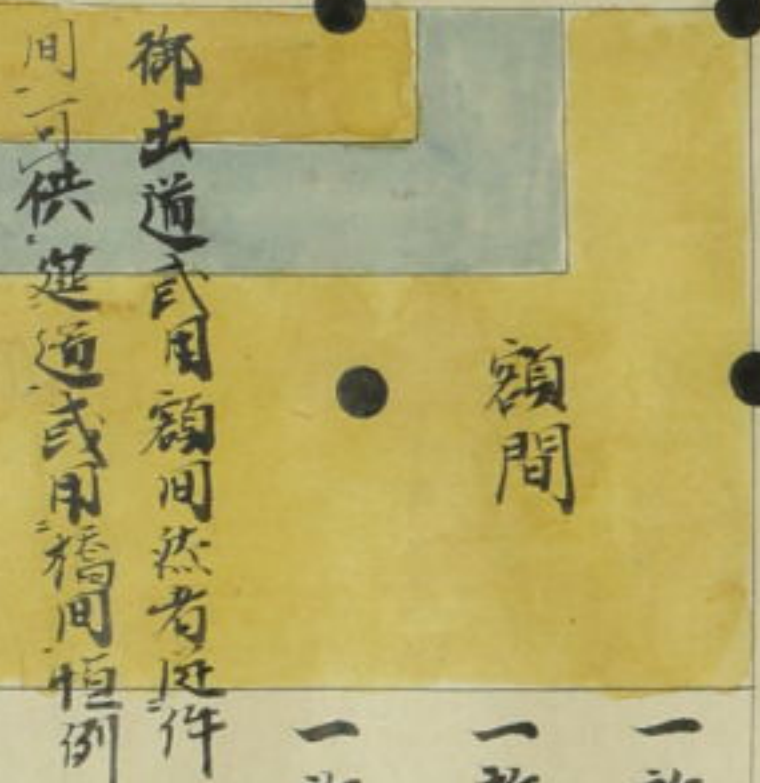 額間
御出道或用額間然者從件
間可供莚道或用橋間恒例
一
一
一